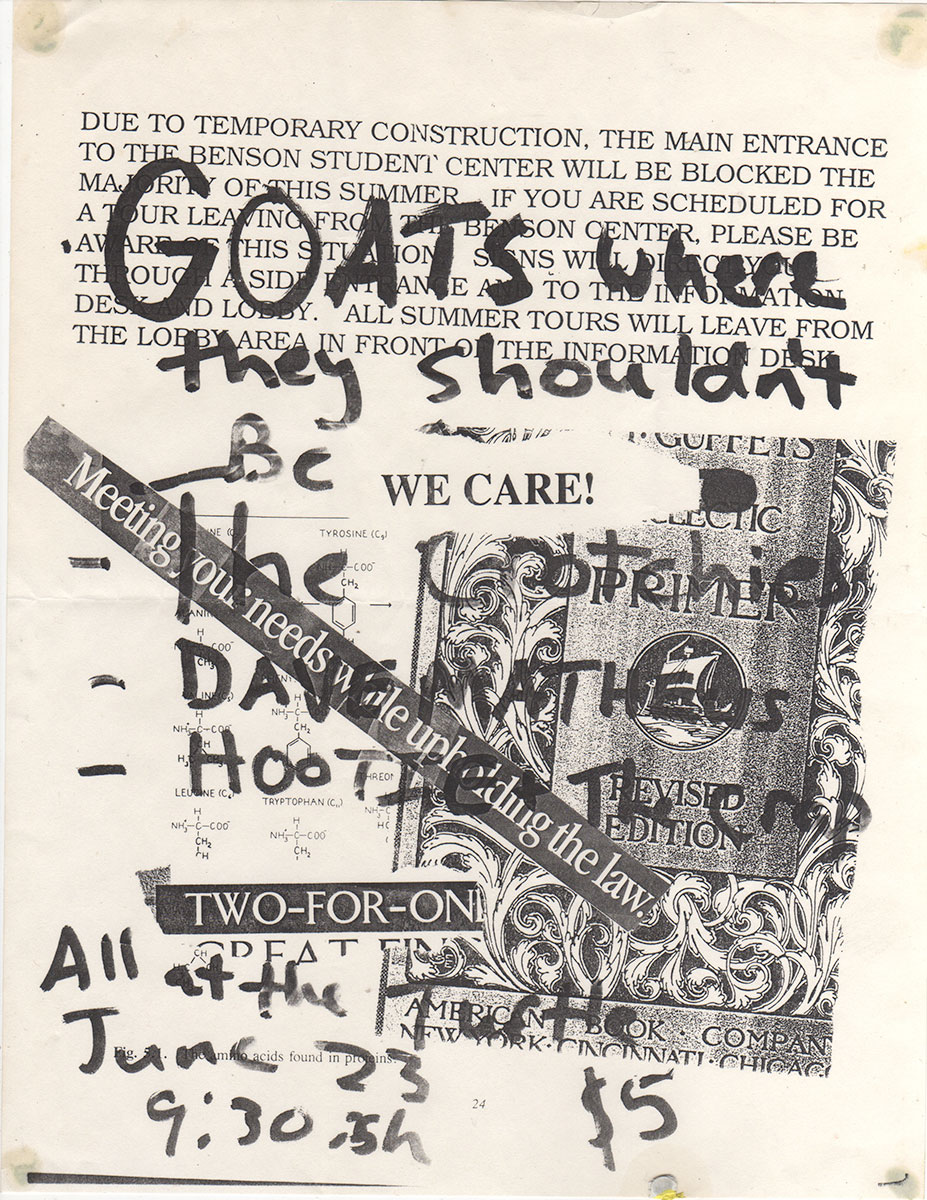 DUE TO TEMPORARY CONSTRUCTION, THE MAIN ENTRANCE
TO THE BENSON STUDENT CENTER WILL BE BLOCKED THE
MAJORITY OF THIS SUMMER. IF YOU ARE SCHEDULED FOR
A TOUR LEAVING FROM THE BENSON CENTER, PLEASE BE
AWARE OF THIS SITUATION. SIGNS WILL DIRECT YOU
THROUGH A SIDE ENTRANCE AND TO THE INFORMATION
DESK AND LOBBY. ALL SUMMER TOURS WILL LEAVE FROM
THE LOBBY AREA IN FRONT OF THE INFORMATION DESK.
GOATS where
they shouldn't
Be
WE CARE!
GUFFEY'S
ECLECTIC
PRIMER
REVISED
EDITION
AMERICAN · BOOK · COMPAN
NEW YORK · CINCINNATI · CHICAGO
Meeting your needs while upholding the law.
- the Crotchies
- DAVE MATHEws
- HOOTIE
TYROSINE (C₉)
COO⁻
CH₂
ALANIN
CH₃
NH₃⁺-C-COO⁻
LEUCINE (C₆)
TRYPTOPHAN (C₁₁)
THREON
NH₃⁺-C-COO⁻
NH₃⁺-C-COO⁻
CH₂
CH₂
TWO-FOR-ONE
GREAT FIN
All at the
June 23
9:30.ish
$5
Fig. 5.1. The amino acids found in proteins.
24